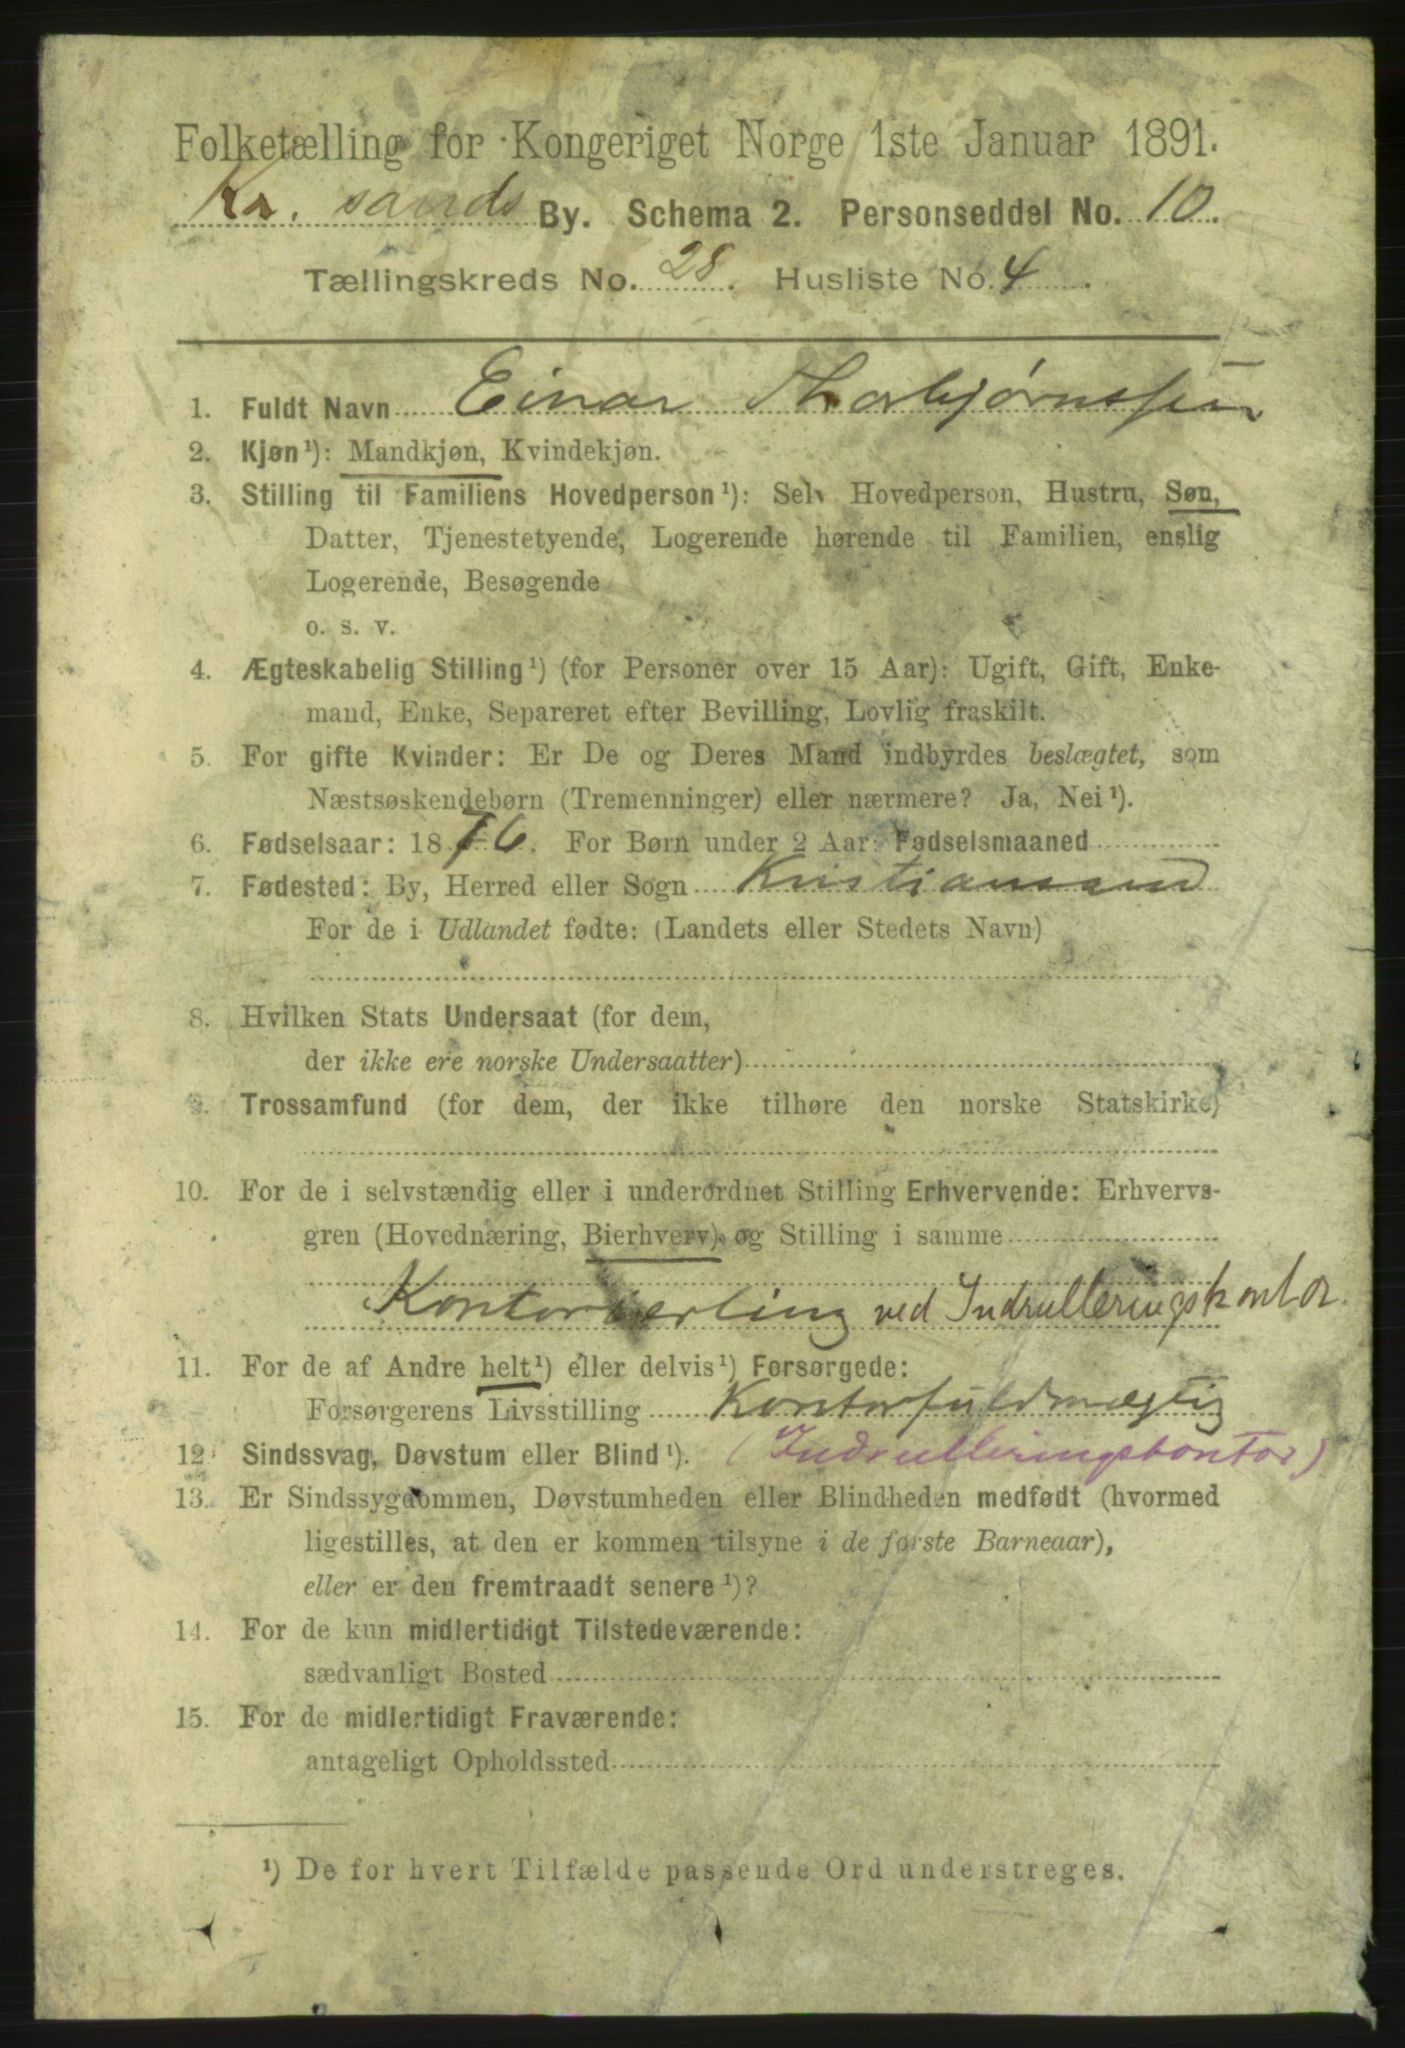 Folketælling for Kongeriget Norge 1ste Januar 1891.
Kr. sands By. Schema 2. Personseddel No. 10.
Tællingskreds No. 28. Husliste No. 4.
1. Fuldt Navn Einar Thorbjørnssen
2. Kjøn¹): Mandkjøn, Kvindekjøn.
3. Stilling til Familiens Hovedperson¹): Selv Hovedperson, Hustru, Søn,
Datter, Tjenestetyende, Logerende hørende til Familien, enslig
Logerende, Besøgende
o. s. v.
4. Ægteskabelig Stilling¹) (for Personer over 15 Aar): Ugift, Gift, Enke-
mand, Enke, Separeret efter Bevilling, Lovlig fraskilt.
5. For gifte Kvinder: Er De og Deres Mand indbyrdes beslægtet, som
Næstsøskendebørn (Tremenninger) eller nærmere? Ja, Nei¹).
6. Fødselsaar: 1876. For Børn under 2 Aar: Fødselsmaaned
7. Fødested: By, Herred eller Sogn Kristianssand
For de i Udlandet fødte: (Landets eller Stedets Navn)
8. Hvilken Stats Undersaat (for dem,
der ikke ere norske Undersaatter)
9. Trossamfund (for dem, der ikke tilhøre den norske Statskirke)
10. For de i selvstændig eller i underordnet Stilling Erhvervende: Erhvervs-
gren (Hovednæring, Bierhverv) og Stilling i samme
Kontorlærling ved Indrulleringskontor.
11. For de af Andre helt¹) eller delvis¹) Forsørgede:
Forsørgerens Livsstilling Kontorfuldmægtig
(Indrulleringskontor)
12. Sindssvag, Døvstum eller Blind¹).
13. Er Sindssygdommen, Døvstumheden eller Blindheden medfødt (hvormed
ligestilles, at den er kommen tilsyne i de første Barneaar),
eller er den fremtraadt senere¹)?
14. For de kun midlertidigt Tilstedeværende:
sædvanligt Bosted
15. For de midlertidigt Fraværende:
antageligt Opholdssted
¹) De for hvert Tilfælde passende Ord understreges.